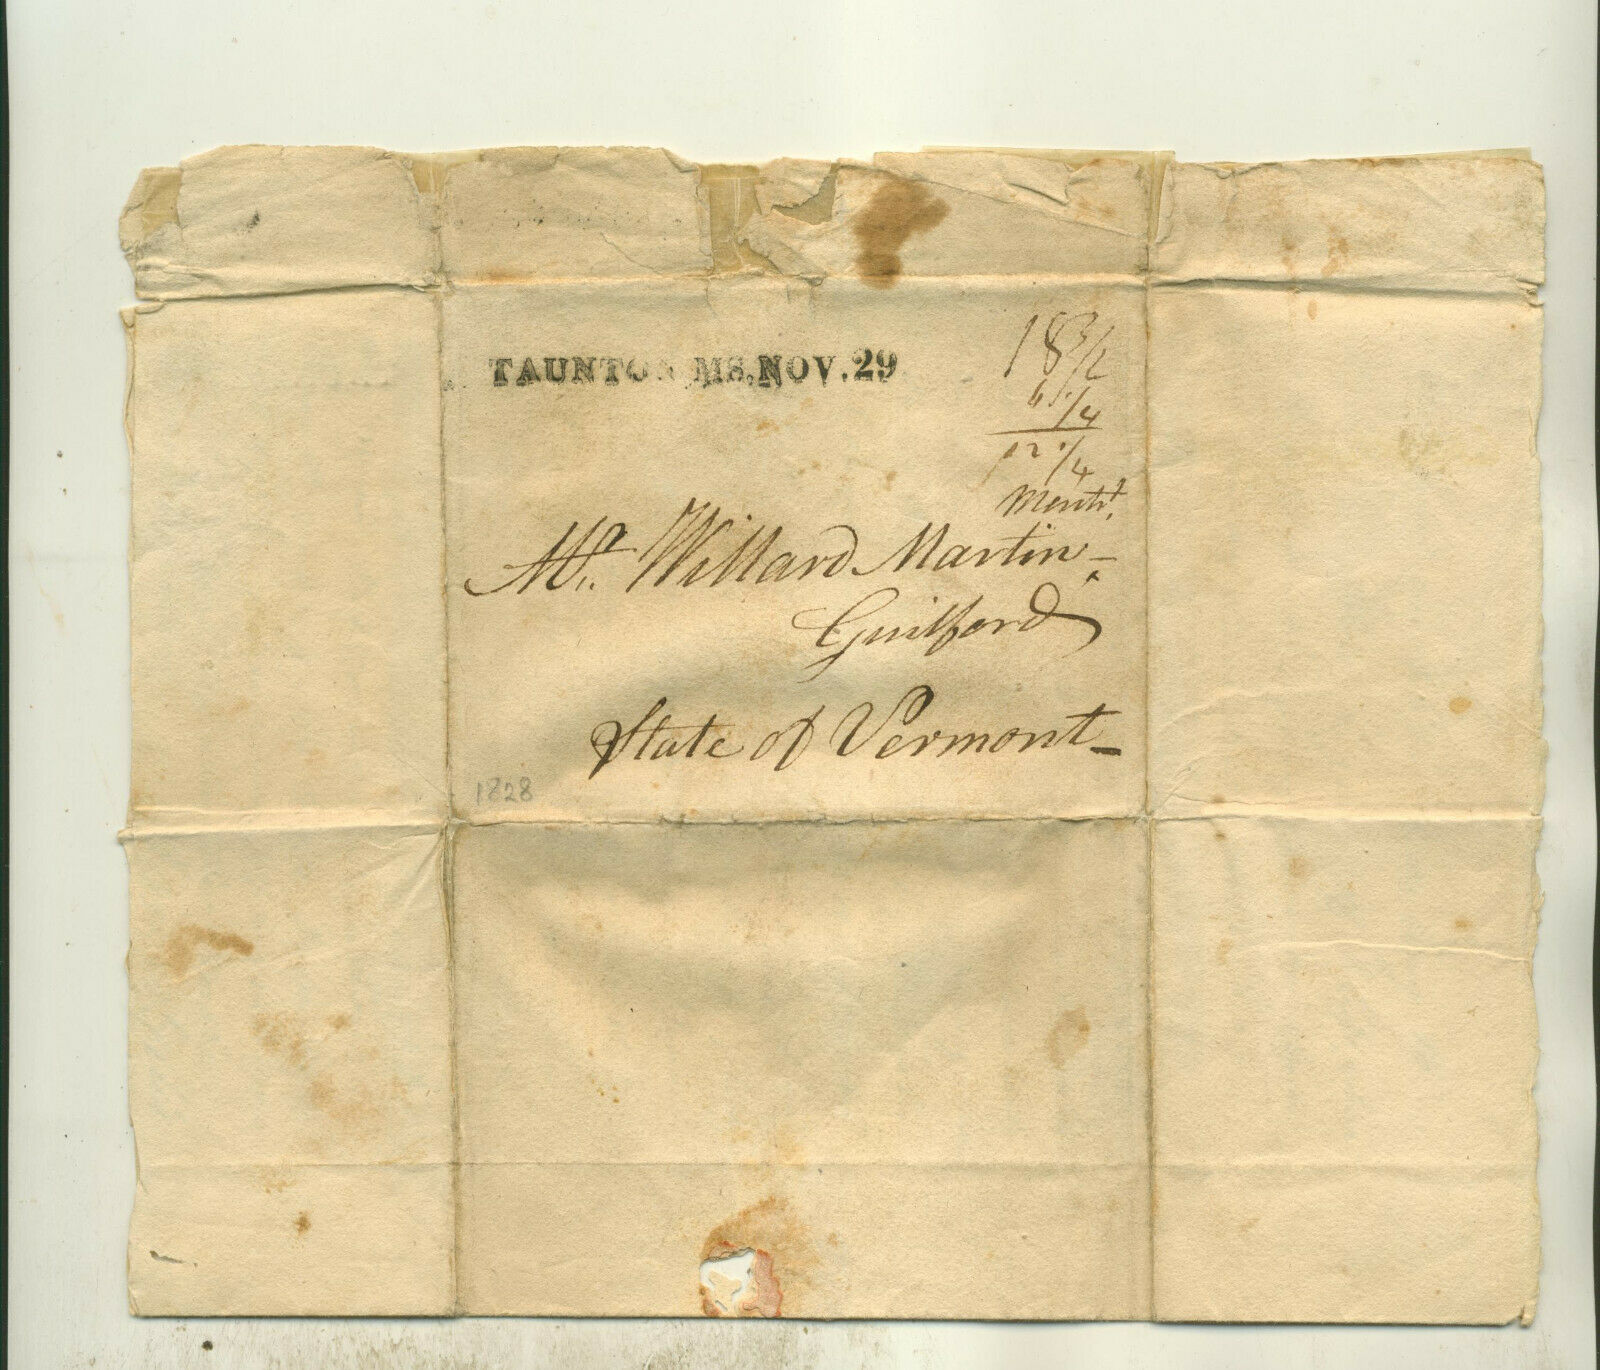 TAUNTON MS. NOV. 29
18 3/2
6 1/4
12 1/4
Mr. Willard Martin -
Guilford
State of Vermont -
1828